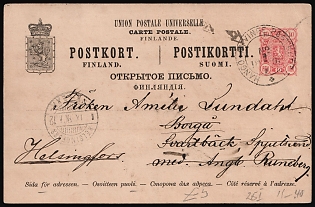 UNION POSTALE UNIVERSELLE
CARTE POSTALE.
FINLANDE
POSTKORT. POSTIKORTTI.
FINLAND. SUOMI.
ОТКРЫТОЕ ПИСЬМО.
ФИНЛЯНДІЯ.
Fröken Amélie Lundahl
Borgå
Svartbäck
Helsingfors
med Ångb. Runeberg
Sida för adressen. - Osoitteen puoli. - Сторона для адреса. - Côté réservé à l'adresse.